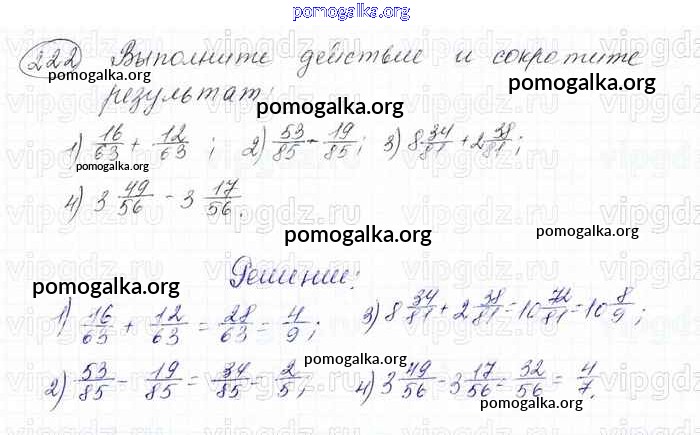 pomogalka.org
222 Выполните действие и сократите
pomogalka.org pomogalka.org
результат:
pomogalka.org
1) 16/63 + 12/63 ; 2) 53/85 - 19/85; 3) 8 34/81 + 2 38/81;
pomogalka.org
4) 3 49/56 - 3 17/56.
pomogalka.org pomogalka.org
Решение:
pomogalka.org pomogalka.org
1) 16/63 + 12/63 = 28/63 = 4/9; 3) 8 34/81 + 2 38/81 = 10 72/81 = 10 8/9;
pomogalka.org
2) 53/85 - 19/85 = 34/85 = 2/5; 4) 3 49/56 - 3 17/56 = 32/56 = 4/7.
pomogalka.org pomogalka.org